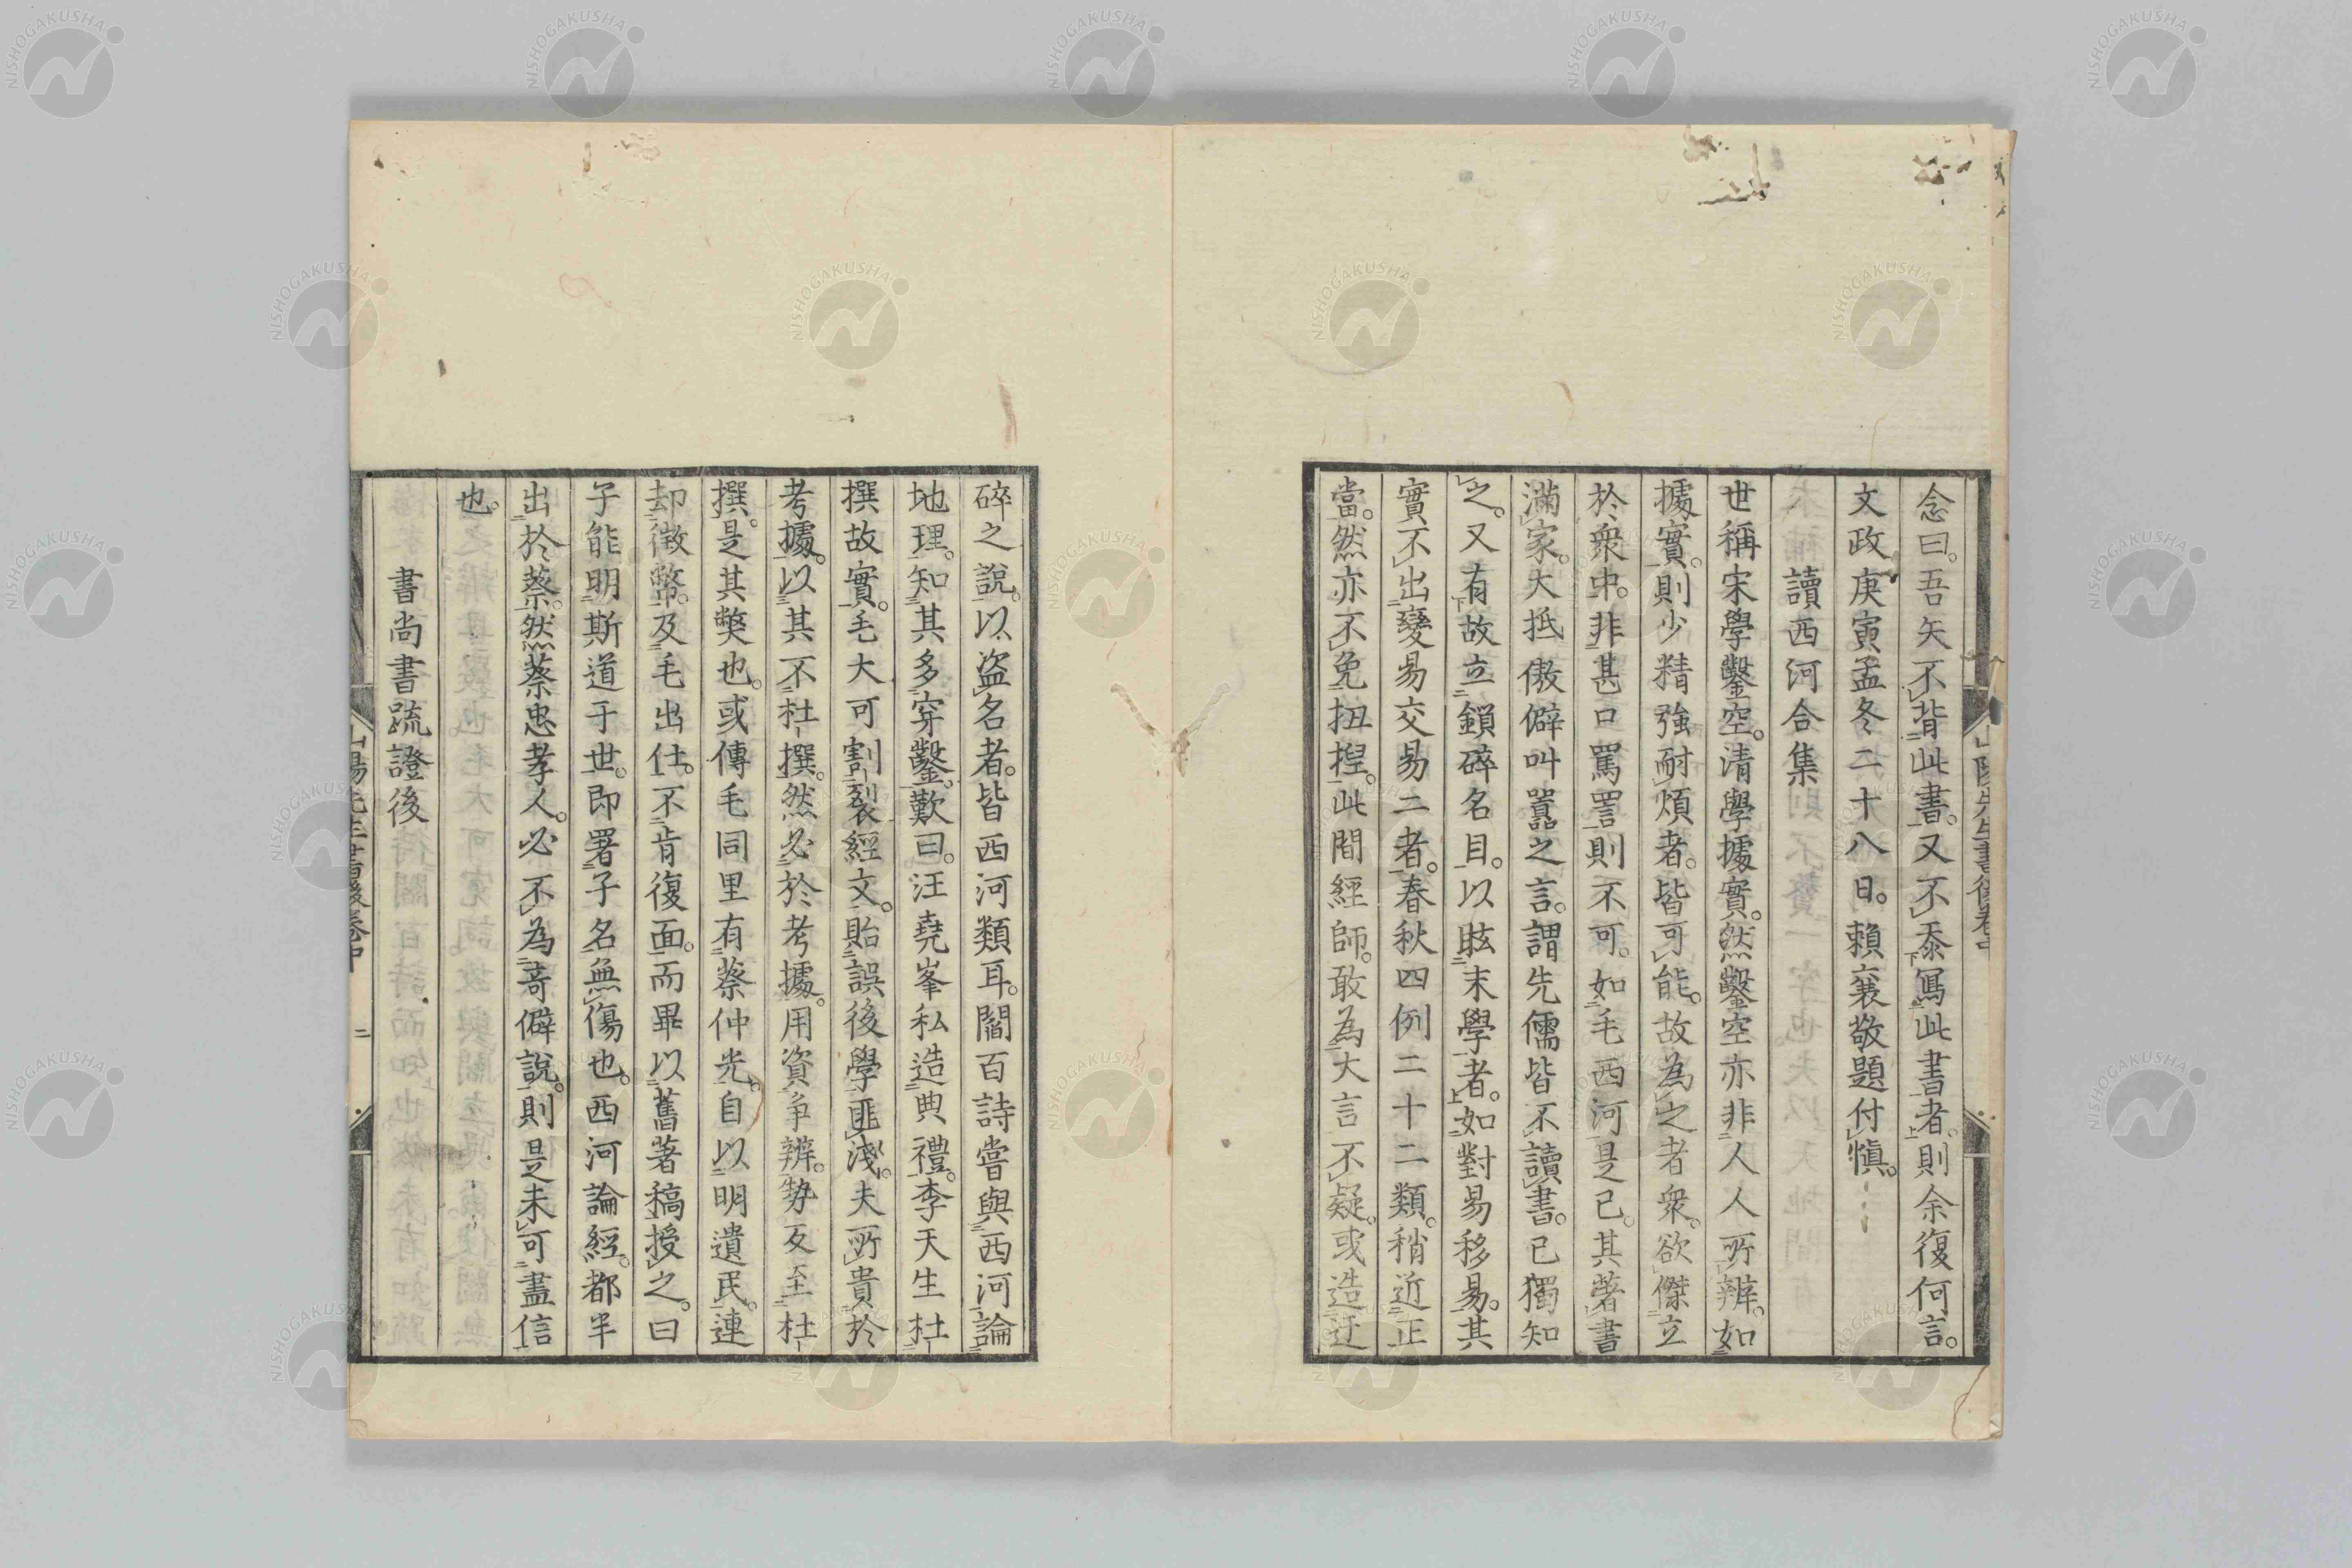 念曰。吾矢不背此書。又不忝寫此書者。則余復何言。
文政庚寅孟冬二十八日。賴襄敬題付愼。
讀西河合集
世稱宋學鑿空。清學據實。然鑿空亦非人人所辨。如
據實。則少精強耐煩者。皆可能。故為之者衆。欲傑立
於衆中。非甚口罵詈則不可。如毛西河是已。其著書
滿家。大抵傲僻叫囂之言。謂先儒皆不讀書。已獨知
之。又有故立鎖碎名目。以眩末學者。如對易移易。其
實不出變易交易二者。春秋四例二十二類。稍近正
當。然亦不免扭捏。此間經師。敢為大言不疑。或造迂
碎之說。以盗名者。皆西河類耳。閻百詩嘗與西河論
地理。知其多穿鑿。歎曰。汪堯峯私造典禮。李天生杜
撰故實。毛大可割裂經文。貽誤後學匪淺。夫所貴於
考據。以其不杜撰。然必於考據。用資爭辨。勢反至杜
撰。是其獘也。或傳毛同里有蔡仲光。自以明遺民。連
却徵幣。及毛出仕。不肯復面。而畢以舊著稿授之。曰
子能明斯道于世。即署子名無傷也。西河論經。都半
出於蔡。然蔡忠孝人。必不為奇僻說。則是未可盡信
也。
書尚書疏證後
山陽先生書後卷中
二
NISHOGAKUSHA